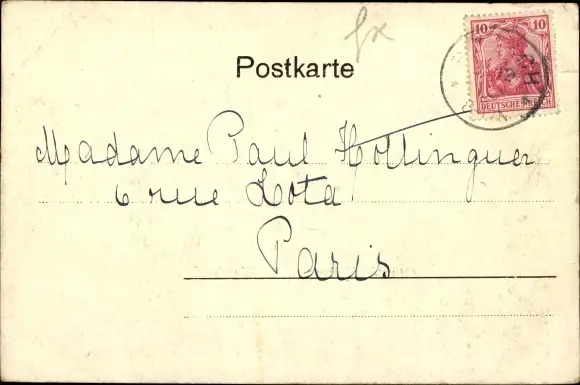 fx
10 10
DEUTSCHES REICH
Postkarte
Madame Paul Hottinguer
6 rue Lota
Paris